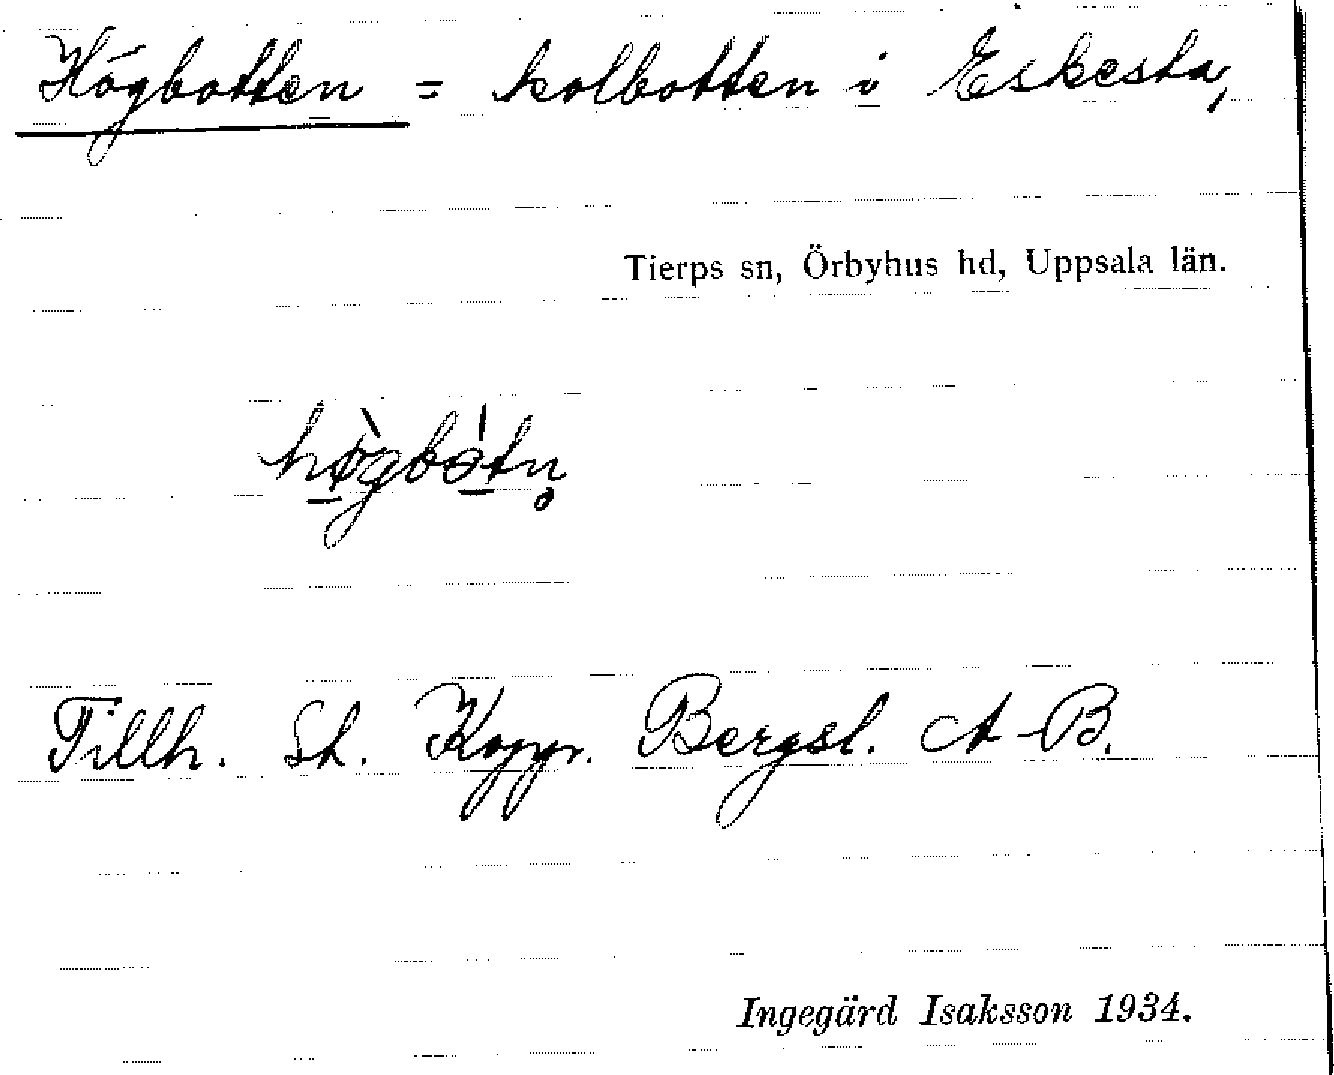 Högbotten = kolbotten i Eskesta,
Tierps sn, Örbyhus hd, Uppsala län.
hø̀gbɵ́tn̥
Tillh. St. Koppr. Bergsl. A-B.
Ingegärd Isaksson 1934.